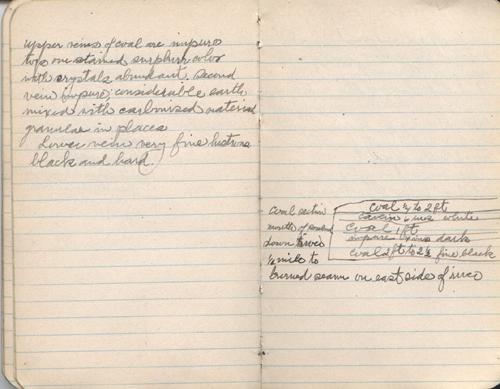 upper veins of coal are impure
top one stained sulphur color
with crystals abundant. Second
vein impure, considerable earth
mixed with carbonized material
granular in places
Lower vein very fine lustrous
black and hard.
Coal section
mouth of
down river
½ mile to
burned seam on east side of river
Coal ½ to 2 ft
6 ins white
Coal 1 ft
impure ins dark
Coal 2 ft to 2½ fine black